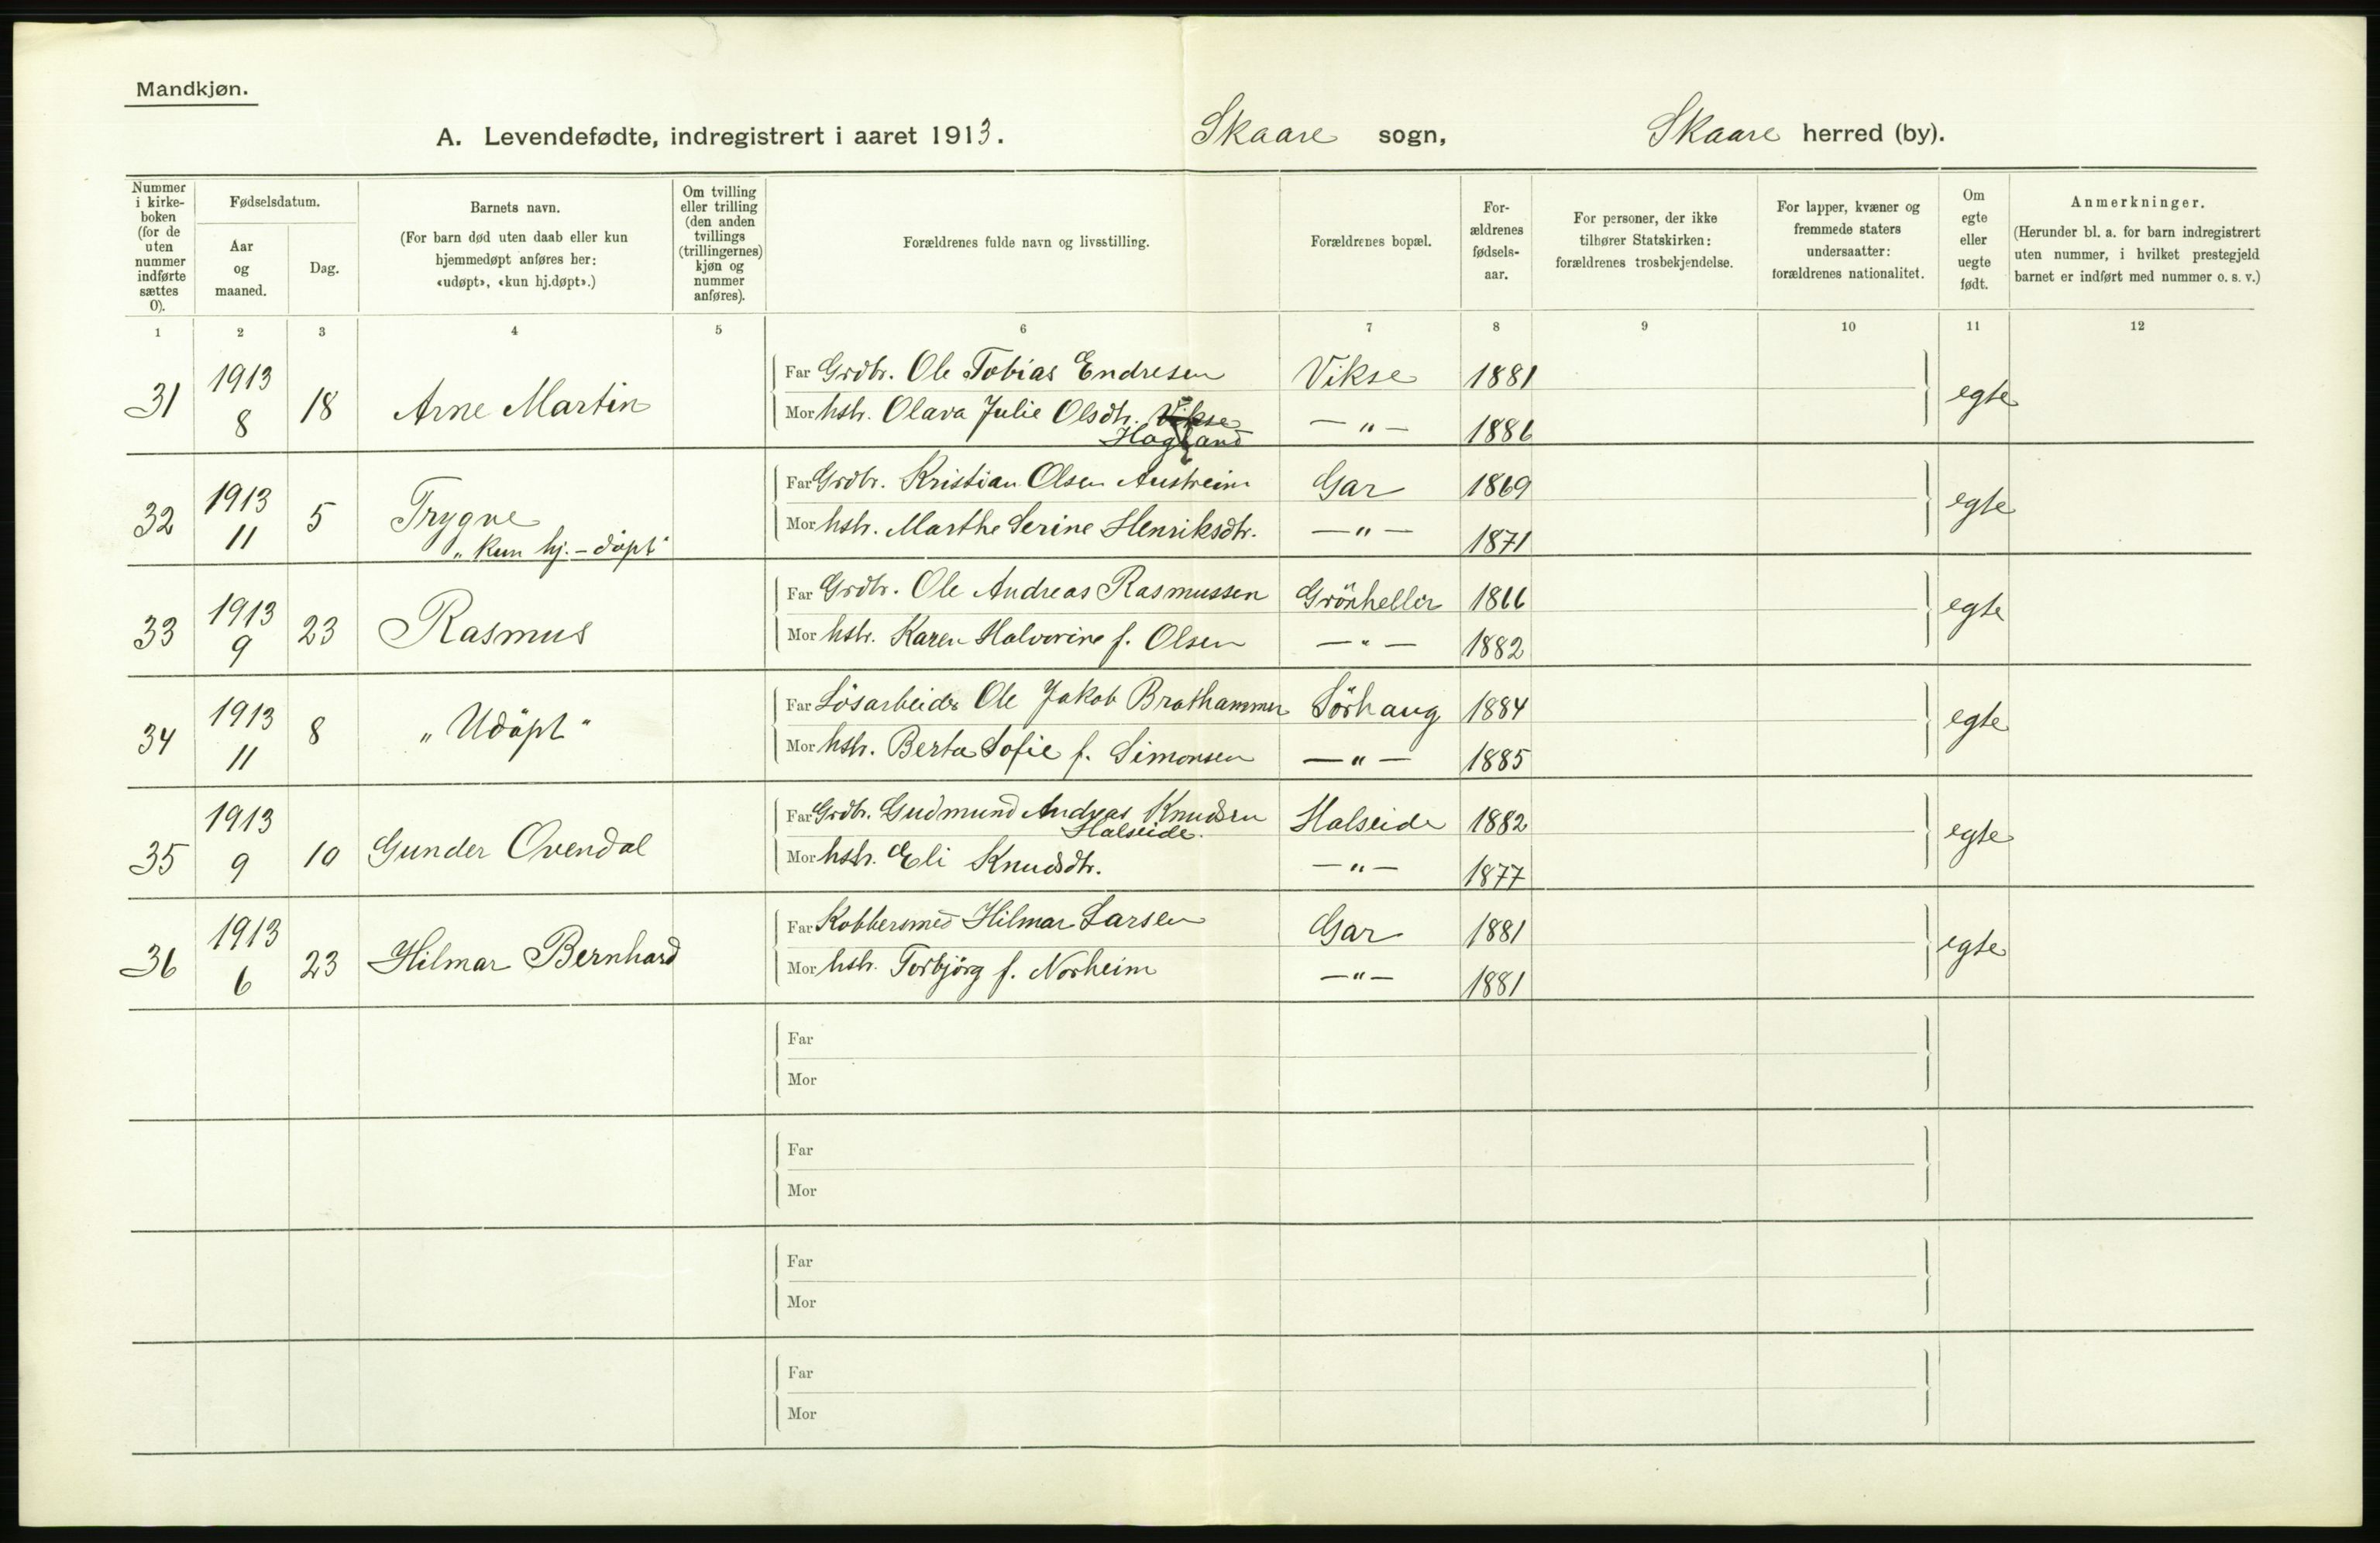 Mandkjøn.
A. Levendefødte, indregistrert i aaret 1913. Skaare sogn, Skaare herred (by).
Nummer i kirke-boken (for de uten nummer indførte sættes 0).
Fødselsdatum.
Aar og maaned.
Dag.
Barnets navn.
(For barn død uten daab eller kun hjemmedøpt anføres her: «udøpt», «kun hj.døpt».)
Om tvilling eller trilling (den anden tvillings (trillingernes) kjøn og nummer anføres).
Forældrenes fulde navn og livsstilling.
Forældrenes bopæl.
For-ældrenes fødsels-aar.
For personer, der ikke tilhører Statskirken: forældrenes trosbekjendelse.
For lapper, kvæner og fremmede staters undersaatter: forældrenes nationalitet.
Om egte eller uegte født.
Anmerkninger.
(Herunder bl. a. for barn indregistrert uten nummer, i hvilket prestegjeld barnet er indført med nummer o. s. v.)
1 2 3 4 5 6 7 8 9 10 11 12
31 1913 8 18 Arne Martin Far Grdbr. Ole Tobias Endresen Vikse 1881 egte
Mor hstr. Olava Julie Olsdtr. Vikse Hagland — " — 1886
32 1913 11 5 Trygve Far Grdbr. Kristian Olsen Austreim Gar 1869 egte
"kun hj.-döpt" Mor hstr. Marthe Serine Henriksdtr. — " — 1871
33 1913 9 23 Rasmus Far Grdbr. Ole Andreas Rasmussen Grönheller 1866 egte
Mor hstr. Karen Halvorine f. Olsen — " — 1882
34 1913 11 8 "Udöpt" Far Lösarbeider Ole Jakob Brathammer Sörhaug 1884 egte
Mor hstr. Berta Sofie f. Simonsen — " — 1885
35 1913 9 10 Gunder Ovendal Far Grdbr. Gudmund Andreas Knudsen Halseide. Halseide 1882 egte
Mor hstr. Eli Knudsdtr. — " — 1877
36 1913 6 23 Hilmar Bernhard Far Kobbersmed Hilmar Larsen Gar 1881 egte
Mor hstr. Torbjörg f. Norheim — " — 1881
Far
Mor
Far
Mor
Far
Mor
Far
Mor